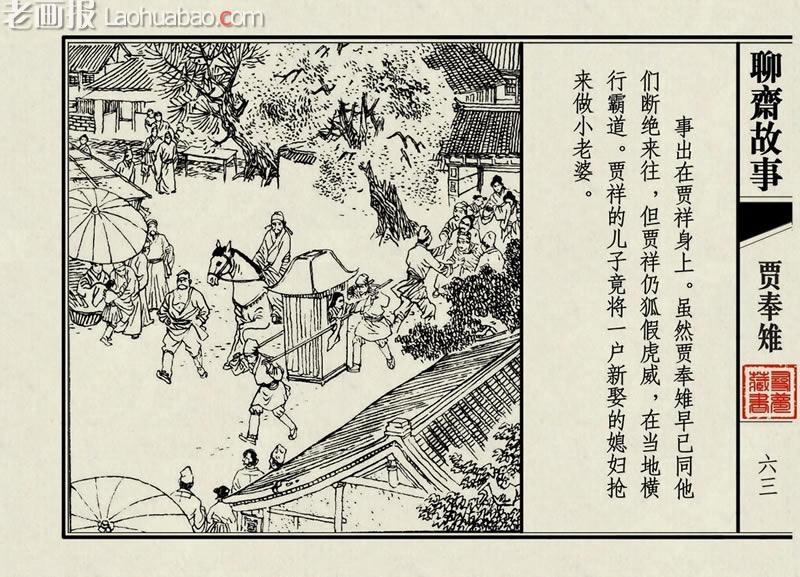 老画报
Laohuabao.com
聊齋故事
贾奉雉
尋夢
藏書
六三
事出在贾祥身上。虽然贾奉雉早已同他
们断绝来往，但贾祥仍狐假虎威，在当地横
行霸道。贾祥的儿子竟将一户新娶的媳妇抢
来做小老婆。